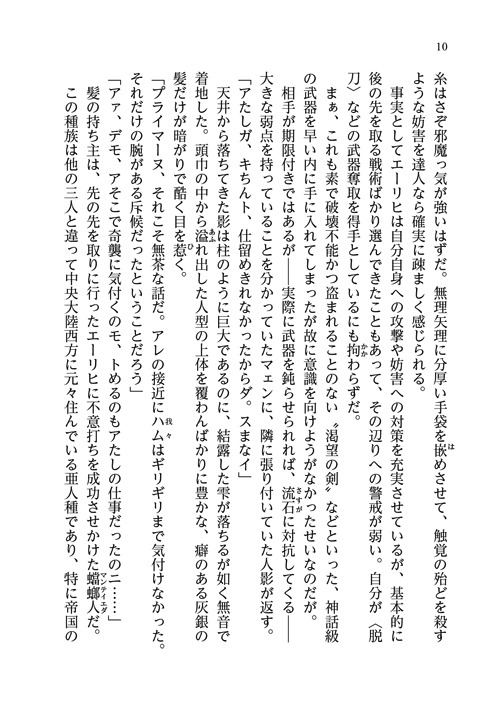 10
糸はさぞ邪魔っ気が強いはずだ。無理矢理に分厚い手袋を嵌めさせて、触覚の殆どを殺す
ような妨害を達人なら確実に疎ましく感じられる。
事実としてエーリヒは自分自身への攻撃や妨害への対策を充実させているが、基本的に
後の先を取る戦術ばかり選んできたこともあって、その辺りへの警戒が弱い。自分が〈脱
刀〉などの武器奪取を得手としているにも拘わらずだ。
まぁ、これも素で破壊不能かつ盗まれることのない〝渇望の剣〟などといった、神話級
の武器を早い内に手に入れてしまったが故に意識を向けようがなかったせいなのだが。
相手が期限付きではあるが――実際に武器を鈍らせられれば、流石に対抗してくる――
大きな弱点を持っていることを分かっていたマェンに、隣に張り付いていた人影が返す。
「あたしガ、キちんト、仕留めきれなかったからダ。スまなイ」
天井から落ちてきた影は柱のように巨大であるのに、結露した雫が落ちるが如く無音で
着地した。頭巾の中から溢れ出した人型の上体を覆わんばかりに豊かな、癖のある灰銀の
髪だけが暗がりで酷く目を惹く。
「プライマーヌ、それこそ無茶な話だ。アレの接近にハムはギリギリまで気付けなかった。
それだけの腕がある斥候だったということだろう」
「アァ、デモ、アそこで奇襲に気付くのモ、トめるのもアたしの仕事だったのニ……」
髪の持ち主は、先の先を取りに行ったエーリヒに不意打ちを成功させかけた蟷螂人だ。
この種族は他の三人と違って中央大陸西方に元々住んでいる亜人種であり、特に帝国の